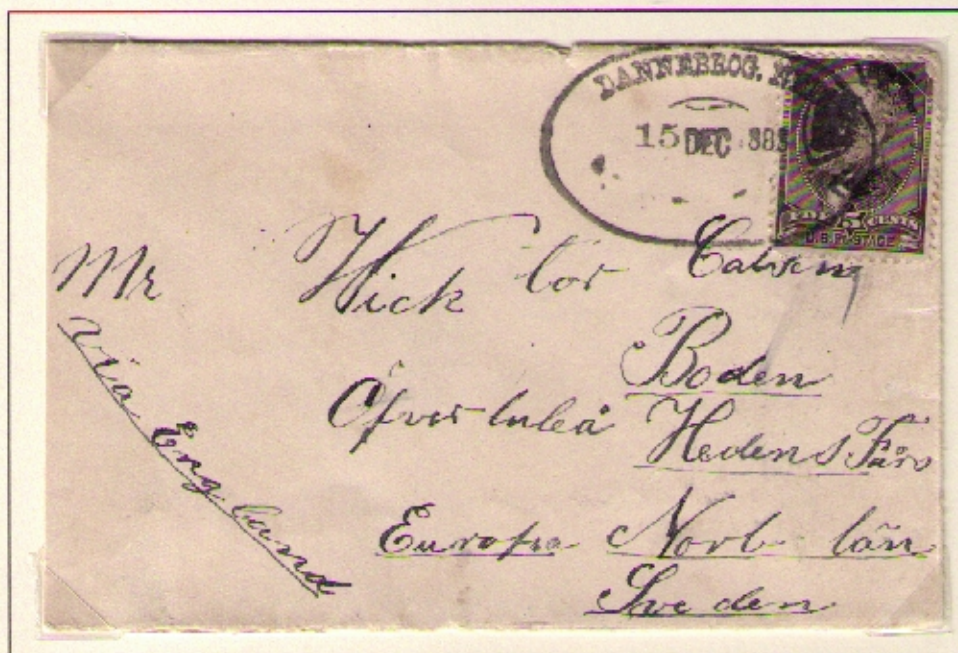 DANNEBROG.
15 DEC
5 CENTS
U.S. POSTAGE
Mr Wicktor
Boden
Öfverluleå Hedens
Europa Norb län
Sweden
via England